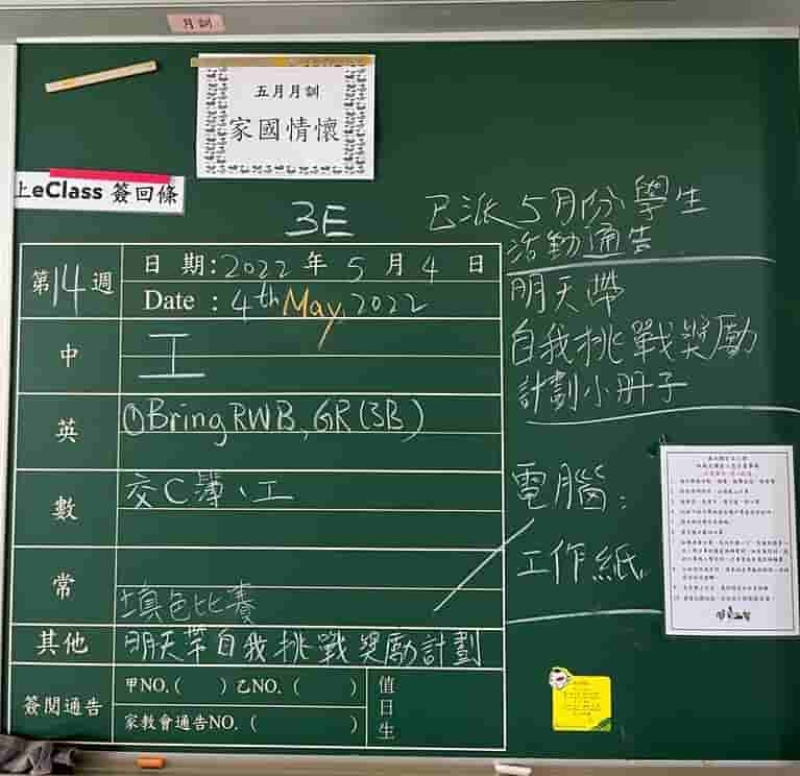 月訓
五月月訓
家國情懷
上eClass 簽回條
3E
已派5月份學生
活動通告
明天帶
自我挑戰獎勵
計劃小冊子
電腦:
工作紙
第14週
日 期:2022 年 5 月 4 日
Date : 4th May, 2022
中
工
英
①Bring RWB, GR(3B)
數
交C簿、工
常
填色比賽
其他
明天帶自我挑戰獎勵計劃
簽閱通告
甲NO.( ) 乙NO.( )
家教會通告NO.( )
值日生